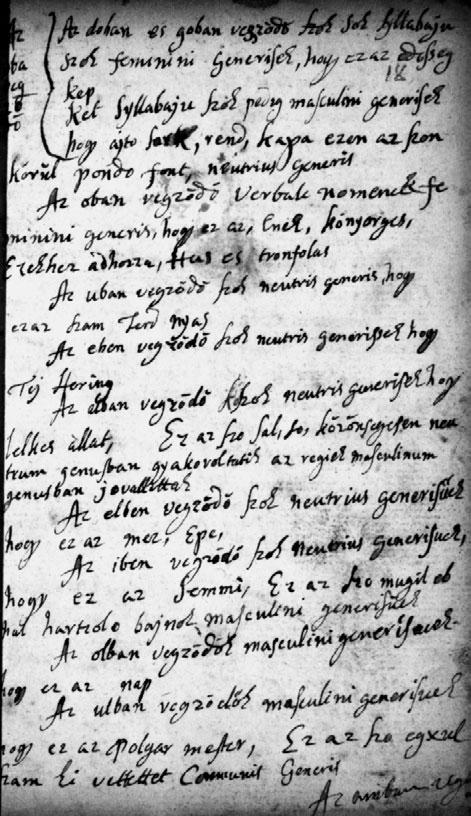 Az doban es goban vegzödö szok sok syllabaju
szok feminini generisek, hogy ez az edesseg
18
kep
Ket syllabaju szok pedig masculini generisek
hogy ajto, rend, kapa ezen az szon
körül pondo font, neutrius generis
Az oban vegzödö Verbale nomenek fe
minini generis, hogy ez az, Enek, könyörges,
Ezekhez adhozza, Hus es tronfolas
Az uban vegzödö szok neutris generis, hogy
ez az szam Terd nyas
Az eben vegzödö szok neutris generissek hogy
Tej Hering
Az alban vegzödö szok neutris generisek hogy
lelkes allat, Ez az szo sal, so, közönsegesen neu
trum genusban gyakoroltatik az regiek masculinum
genusban jovallottak
Az elben vegzödö szok neutrius generisuek
hogy ez az mez, Epe,
Az iben vegzödö szok neutrius generisuek,
hogy ez az semmi, Ez az szo mugil eb
hal hartzolo bajnok masculini generisuek
Az olban vegzödök masculini generisuek
hogy ez az nap
Az ulban vegzödök masculini generisuek
hogy ez az Polgar mester, Ez az szo egxul
szam ki vettettet Communis Generis
Az